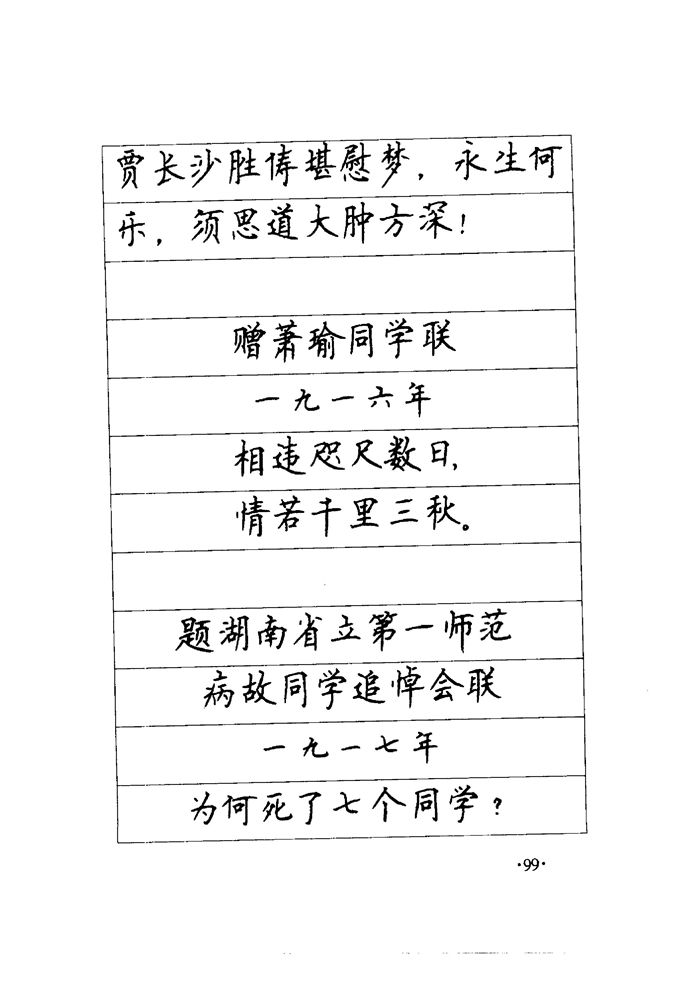 贾长沙胜俦堪慰梦，永生何
乐，须思道大肿方深！
赠萧瑜同学联
一九一六年
相违咫尺数日，
情若千里三秋。
题湖南省立第一师范
病故同学追悼会联
一九一七年
为何死了七个同学？
·99·